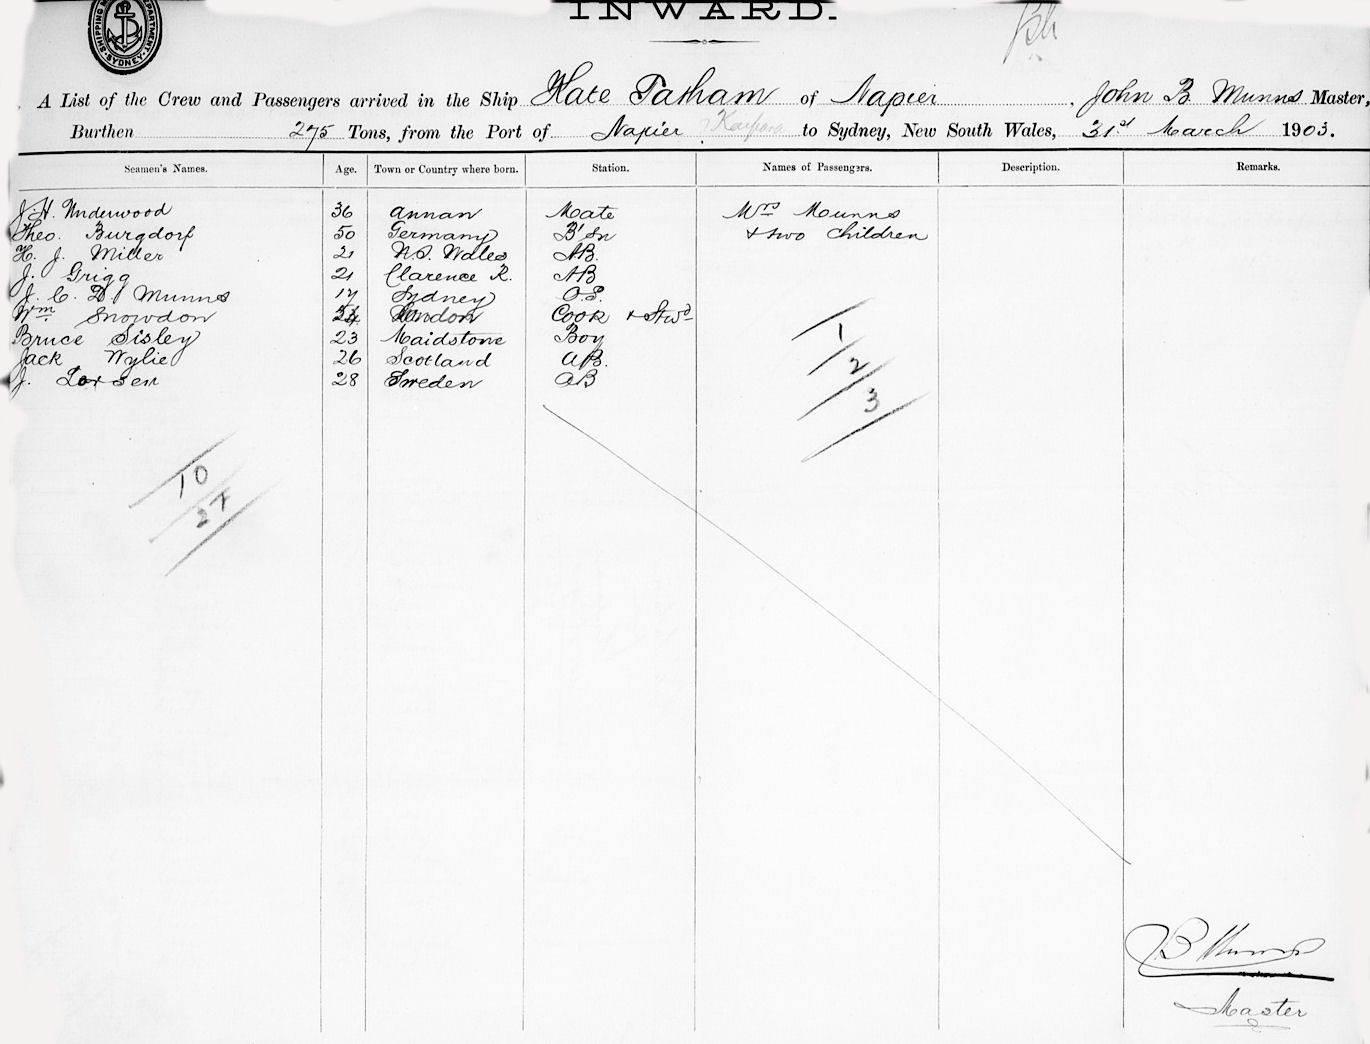 SHIPPING DEPARTMENT SYDNEY
INWARD.
A List of the Crew and Passengers arrived in the Ship Kate Tatham of Napier, John B. Munns Master,
Burthen 275 Tons, from the Port of Napier ? Kaipara to Sydney, New South Wales, 31st March 1903.
Seamen's Names. Age. Town or Country where born. Station. Names of Passengers. Description. Remarks.
J. H. Underwood 36 Annan Mate Mrs Munns
Theo. Burgdorf 50 Germany B'Sn + two children
H. J. Miller 21 N.S. Wales AB.
J. Grigg 21 Clarence R. AB
J. C. D. Munns 17 Sydney O.S.
Wm Snowdon London Cook + Stwd
Bruce Sisley 23 Maidstone Boy
Jack Wylie 26 Scotland AB.
J. Larsen 28 Sweden AB
1
2
3
10
27
JB Munns
Master